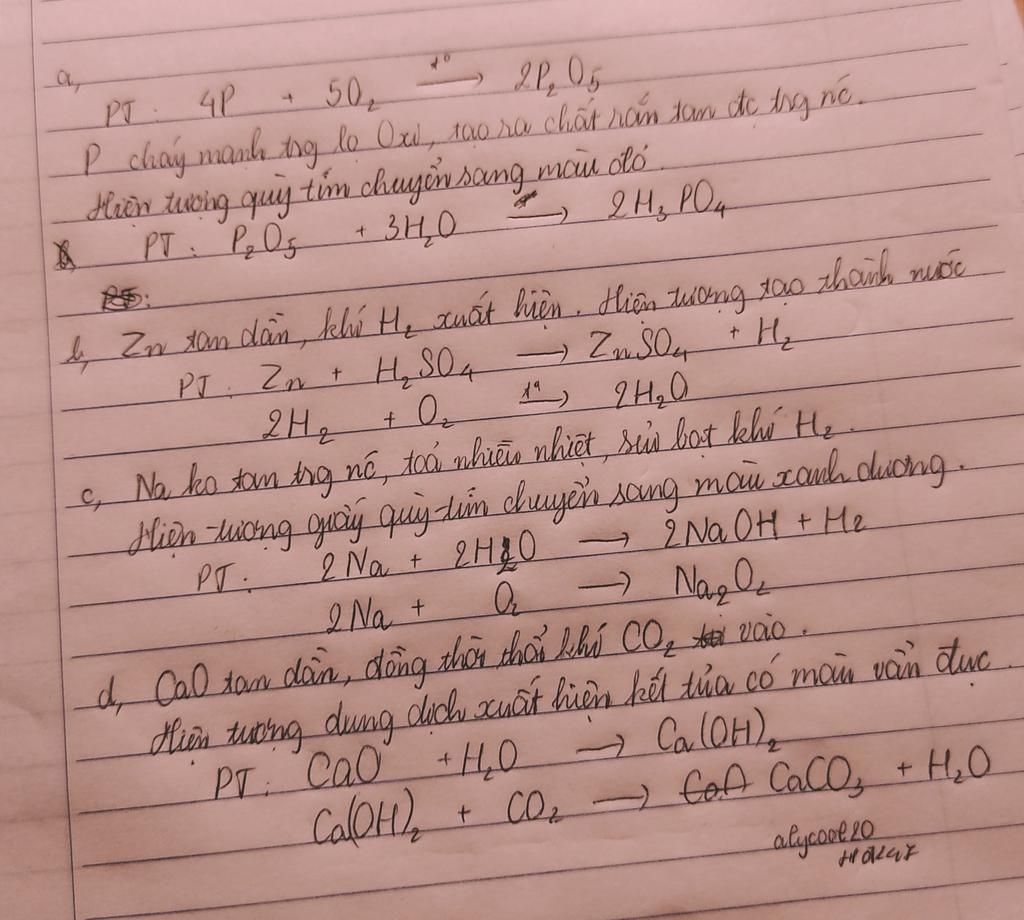 a,
PT: 4P + 5O₂ →(t°) 2P₂O₅
P cháy mạnh trg lọ Oxi, tạo ra chất rắn tan đc trg nc.
Hiện tượng quỳ tím chuyển sang màu đỏ.
PT: P₂O₅ + 3H₂O → 2H₃PO₄
b, Zn tan dần, khí H₂ xuất hiện. Hiện tượng tạo thành nước
PT: Zn + H₂SO₄ → ZnSO₄ + H₂
2H₂ + O₂ →(t°) 2H₂O
c, Na ko tan trg nc, toả nhiều nhiệt, sủi bọt khí H₂.
Hiện tượng quấy quỳ tím chuyển sang màu xanh dương.
PT: 2Na + 2H₂O → 2NaOH + H₂
2Na + O₂ → Na₂O₂
d, CaO tan dần, đồng thời thổi khí CO₂ vào.
Hiện tượng dung dịch xuất hiện kết tủa có màu vẩn đục.
PT: CaO + H₂O → Ca(OH)₂
Ca(OH)₂ + CO₂ → CaCO₃ + H₂O
alycool20